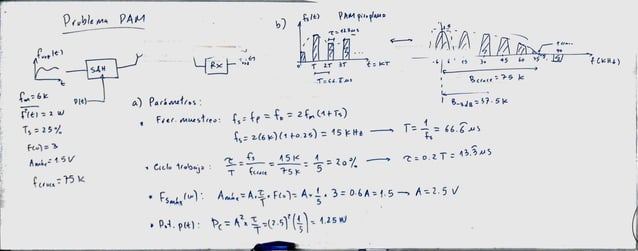 Problema PAM
f_inp(t)
t
S&H
D(t)
Rx
fm = 6K
f²(t) = 2 W
Ts = 25%
F(0) = 3
Amáx = 1.5V
fcruce = 75 K
b)
fs(t) PAM piroplano
T 2T 3T t = KT
T = 66.6 us
-6 6 15 30 45 60 75 90 f(KHz)
Bcruce = 75 K
B-3dB = 37.5 K
a) Parámetros:
• Frec. muestreo: fs = fp = f0 = 2fm(1+Ts)
fs = 2(6K)(1+0.25) = 15 KHz → T = 1/fs = 66.6 us
• Ciclo trabajo: τ/T = fs/fcruce = 15K/75K = 1/5 = 20% → τ = 0.2 T = 13.3 us
• Fsmáx(w): Amáx = A·τ/T·F(0) = A·1/5·3 = 0.6A = 1.5 → A = 2.5 V
• Pot. p(t): Pc = A²·τ/T = (2.5)²(1/5) = 1.25 W